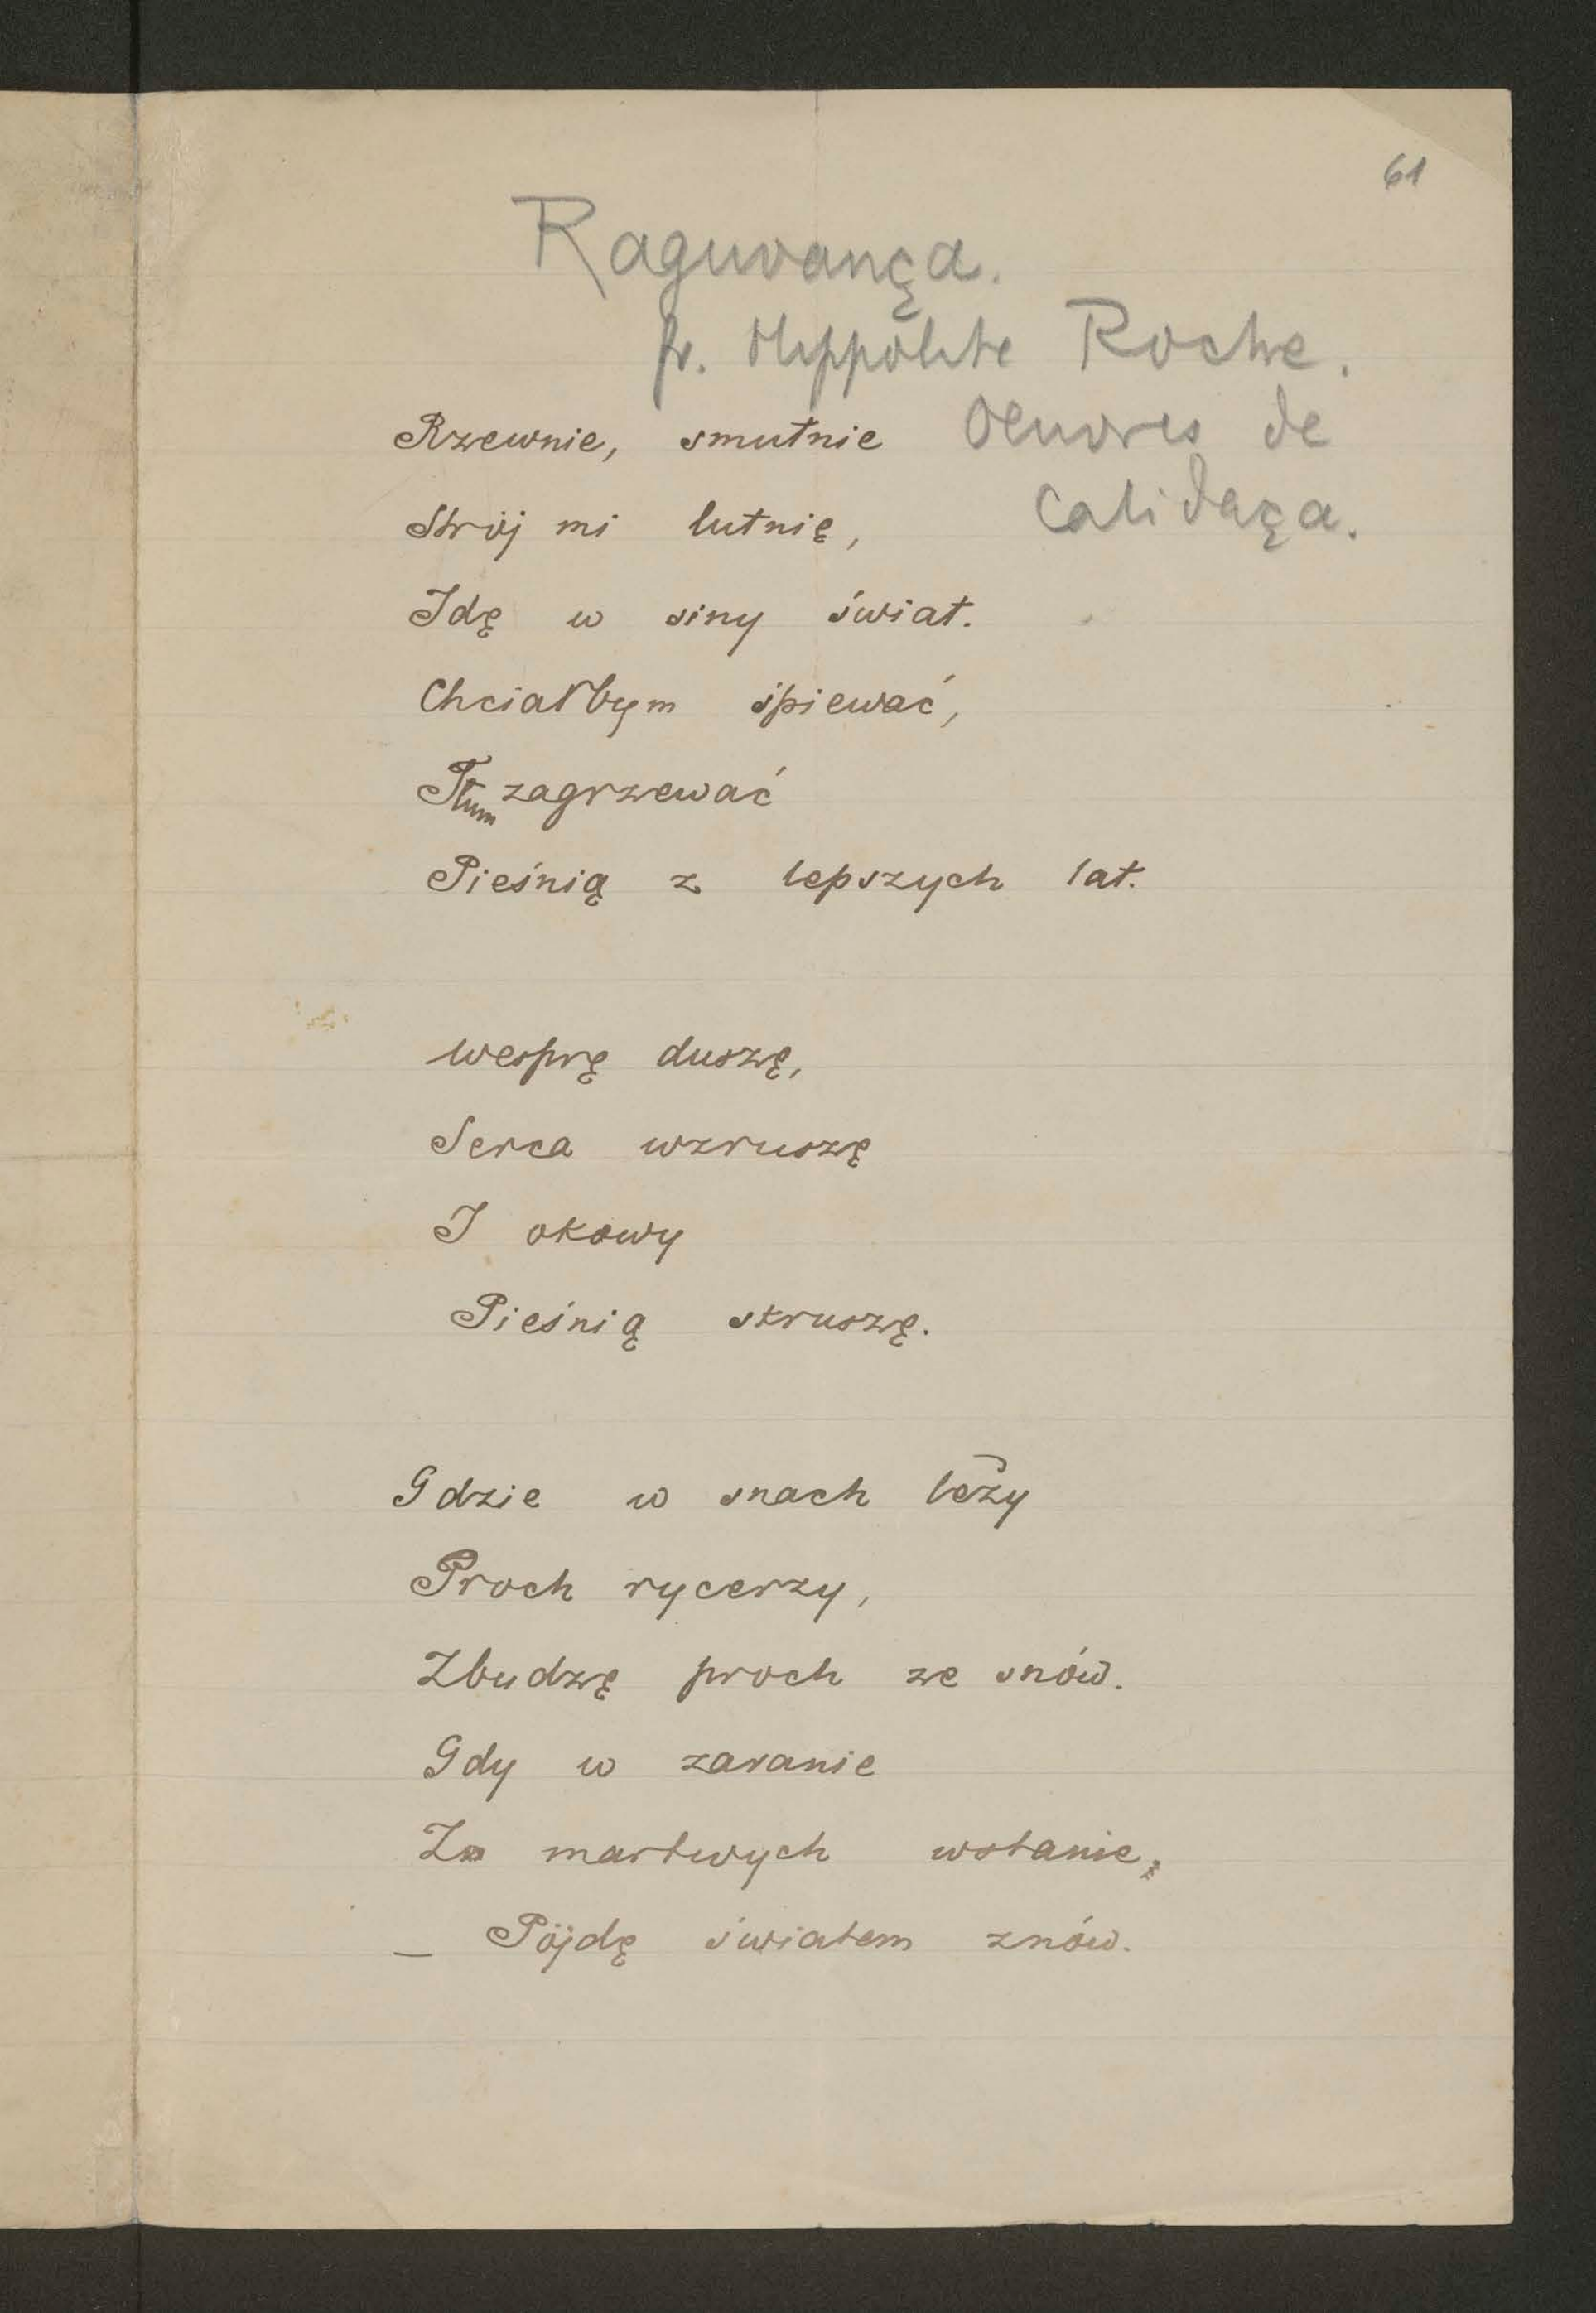 61
Raguvança.
fr. Hippolite Roche.
Rzewnie, smutnie
Oeuvres de
Strój mi lutnię,
Calidaça.
Idę w siny świat.
Chciałbym śpiewać,
Tłum zagrzewać
Pieśnią z lepszych lat.
Wesprę duszę,
Serca wzruszę
I okowy
Pieśnią skruszę.
Gdzie w snach leży
Proch rycerzy,
Zbudzę proch ze snów.
Gdy w zaranie
Za martwych wstanie,
_ Pójdę światem znów.